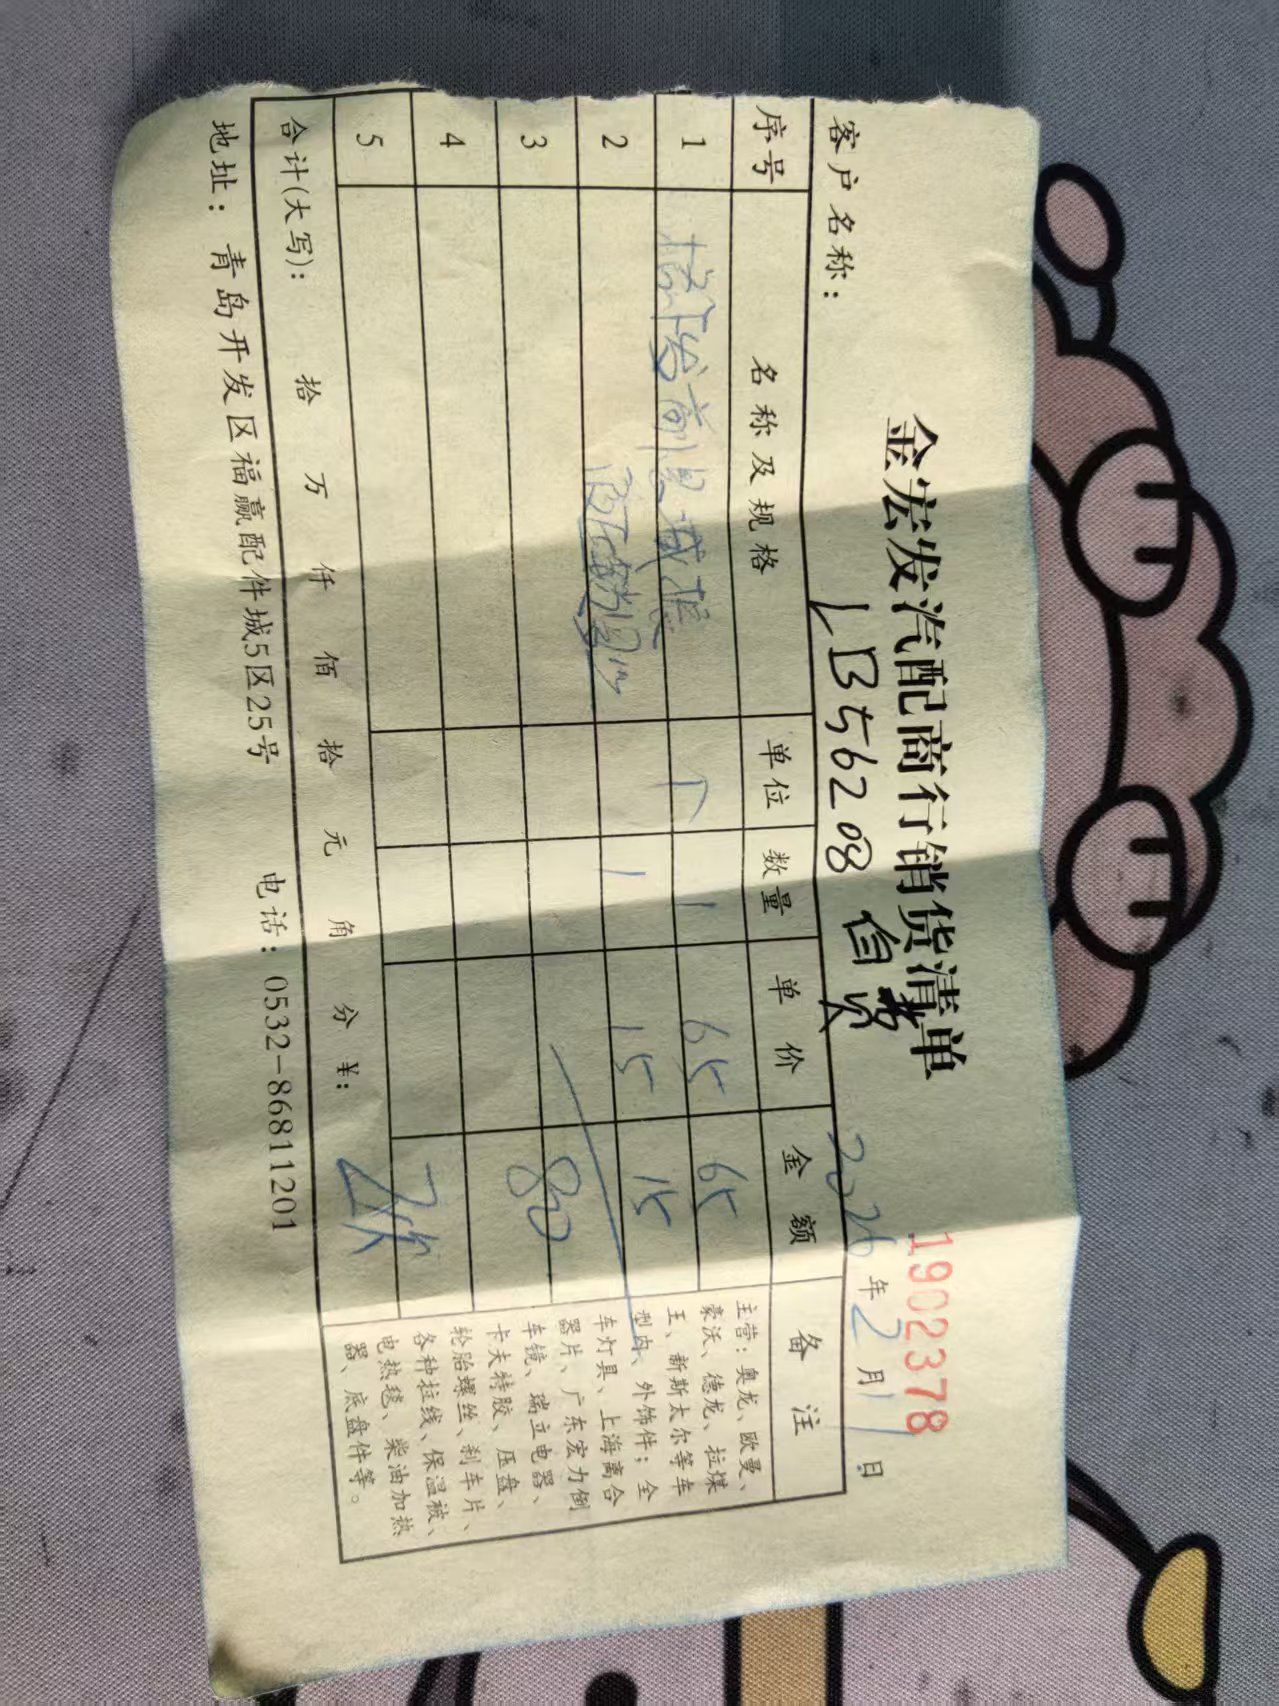 金宏发汽配商行销货清单
19023378
LB56208 自费
客户名称：
2026年2月11日
序号 名称及规格 单位 数量 单价 金额 备注
1 个 1 65 65
2 1 15 15
3 80
4
5
主营：奥龙、欧曼、
豪沃、德龙、拉煤
王、新斯太尔等车
型内、外饰件；全
车灯具、上海离合
器片、广东宏力倒
车镜、瑞立电器、
卡夫特胶、压盘、
轮胎螺丝、刹车片、
各种拉线、保温被、
电热毯、柴油加热
器、底盘件等。
合计(大写)： 拾 万 仟 佰 拾 元 角 分 ￥：
地址：青岛开发区福赢配件城5区25号 电话：0532-86811201